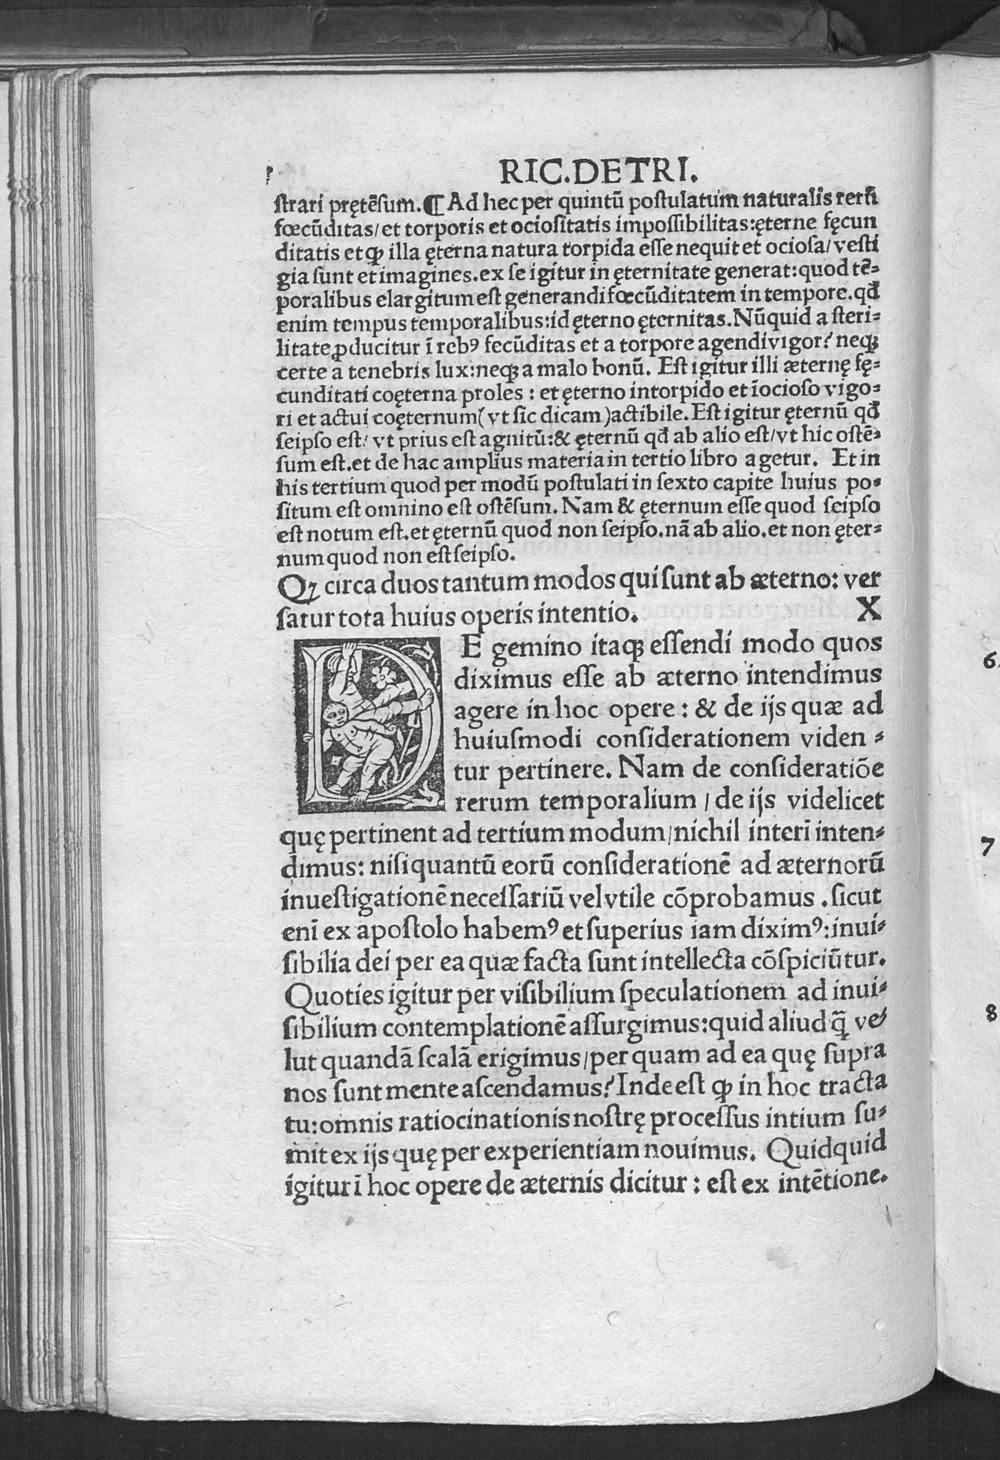 RIC.DE TRI.
ſtrari prętēſum.¶ Ad hec per quintū poſtulatum naturalis rerū
fœcūditas/ et torporis et ocioſitatis impoſſibilitas:ęterne fęcun
ditatis et ꝙ illa ęterna natura torpida eſſe nequit et ocioſa/ veſti
gia ſunt et imagines.ex ſe igitur in ęternitate generat:quod tē⸗
poralibus elargitum eſt generandi fœcūditatem in tempore.qđ
enim tempus temporalibus:id ęterno ęternitas.Nūquid a ſteri⸗
litate ꝓducitur ī rebꝰ fecūditas et a torpore agendi vigor? neqꝫ
certe a tenebris lux:neqꝫ a malo bonū. Eſt igitur illi æternę fę⸗
cunditati coęterna proles : et ęterno intorpido et īocioſo vigo⸗
ri et actui coęternum( vt ſic dicam )actibile.Eſt igitur ęternū qđ
ſeipſo eſt/ vt prius eſt agnitū:& ęternū qđ ab alio eſt/vt hic oſtē⸗
ſum eſt.et de hac amplius materia in tertio libro agetur. Et in
his tertium quod per modū poſtulati in ſexto capite huius po⸗
ſitum eſt omnino eſt oſtēſum. Nam & ęternum eſſe quod ſeipſo
eſt notum eſt.et ęternū quod non ſeipſo.nā ab alio.et non ęter⸗
num quod non eſt ſeipſo.
Qꝫ circa duos tantum modos qui ſunt ab æterno: ver
ſatur tota huius operis intentio. X
DE gemino itaqꝫ eſſendi modo quos
diximus eſſe ab æterno intendimus
agere in hoc opere : & de ijs quæ ad
huiuſmodi conſiderationem viden⸗
tur pertinere. Nam de conſideratiōe
rerum temporalium / de ijs videlicet
quę pertinent ad tertium modum/nichil interī inten⸗
dimus: niſi quantū eorū conſiderationē ad æternorū
inueſtigationē neceſſariū vel vtile cōprobamus .ſicut
enī ex apoſtolo habemꝰ et ſuperius iam diximꝰ:inui⸗
ſibilia dei per ea quæ facta ſunt intellecta cōſpiciūtur.
Quoties igitur per viſibilium ſpeculationem ad inui⸗
ſibilium contemplationē aſſurgimus:quid aliud q̄ ve⸗
lut quandā ſcalā erigimus/per quam ad ea quę ſupra
nos ſunt mente aſcendamus? Inde eſt ꝙ in hoc tracta
tu:omnis ratiocinationis noſtrę proceſſus intium ſu⸗
mit ex ijs quę per experientiam nouimus. Quidquid
igitur ī hoc opere de æternis dicitur : eſt ex intētione.
6
7
8